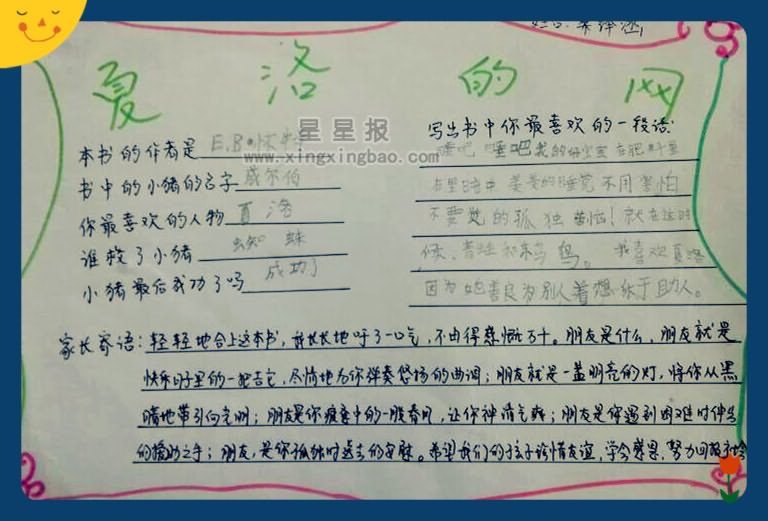 夏洛的网
星星报
www.xingxingbao.com
本书的作者是 E.B·怀特
书中的小猪的名字 威尔伯
你最喜欢的人物 夏洛
谁救了小猪 蜘蛛
小猪最后成功了吗 成功了
写出书中你最喜欢的一段话:
睡吧 睡吧我的好宝宝 在肥料里
在黑暗中 美美的睡觉 不用害怕
不要觉的孤独 害怕!就在这时
候,青蛙和鸫鸟。我喜欢夏洛
因为她善良为别人着想乐于助人。
家长寄语:轻轻地合上这本书,并长长地呼了一口气,不由得感慨万千。朋友是什么,朋友就是
快乐日子里的一把吉它,尽情地为你弹奏悠扬的曲调;朋友就是一盏明亮的灯,将你从黑
暗地带引向光明;朋友是你疲惫中的一股春风,让你神清气爽;朋友是你遇到困难时伸出
的援助之手;朋友,是你孤独时送去的安慰。希望我们的孩子珍惜友谊,学会感恩,努力回报社会